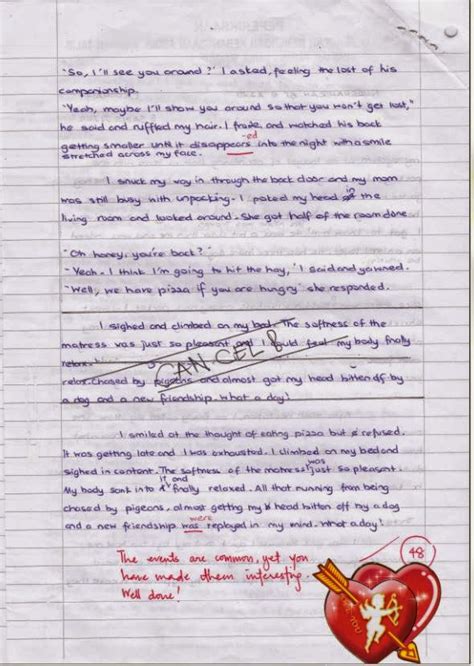 "So, I'll see you around?" I asked, feeling the lost of his
companionship.
"Yeah, maybe I'll show you around so that you won't get lost,"
he said and ruffled my hair. I froze, and watched his back
-ed
getting smaller until it disappears into the night with a smile
stretched across my face.
I snuck my way in through the back door and my mom
in
was still busy with unpacking. I poked my head the
living room and looked around. She got half of the room done
"Oh honey, you're back?"
"Yeah. I think I'm going to hit the hay," I said and yawned.
"Well, we have pizza if you are hungry" she responded.
I sighed and climbed on my bed. The softness of the
matress was just so pleasant and I could feel my body finally
relax.
CANCEL
relax. chased by pigeons and almost got my head bitten off by
a dog and a new friendship. What a day!
I smiled at the thought of eating pizza but refused.
It was getting late and I was exhausted. I climbed on my bed and
was
sighed in content. The softness of the matress just so pleasant.
it and
My body sank into finally relaxed. All that running from being
chased by pigeons, almost getting my head bitten off my a dog
were
and a new friendship was replayed in my mind. What a day!
48
The events are common, yet you
have made them interesting.
Well done!
YOU